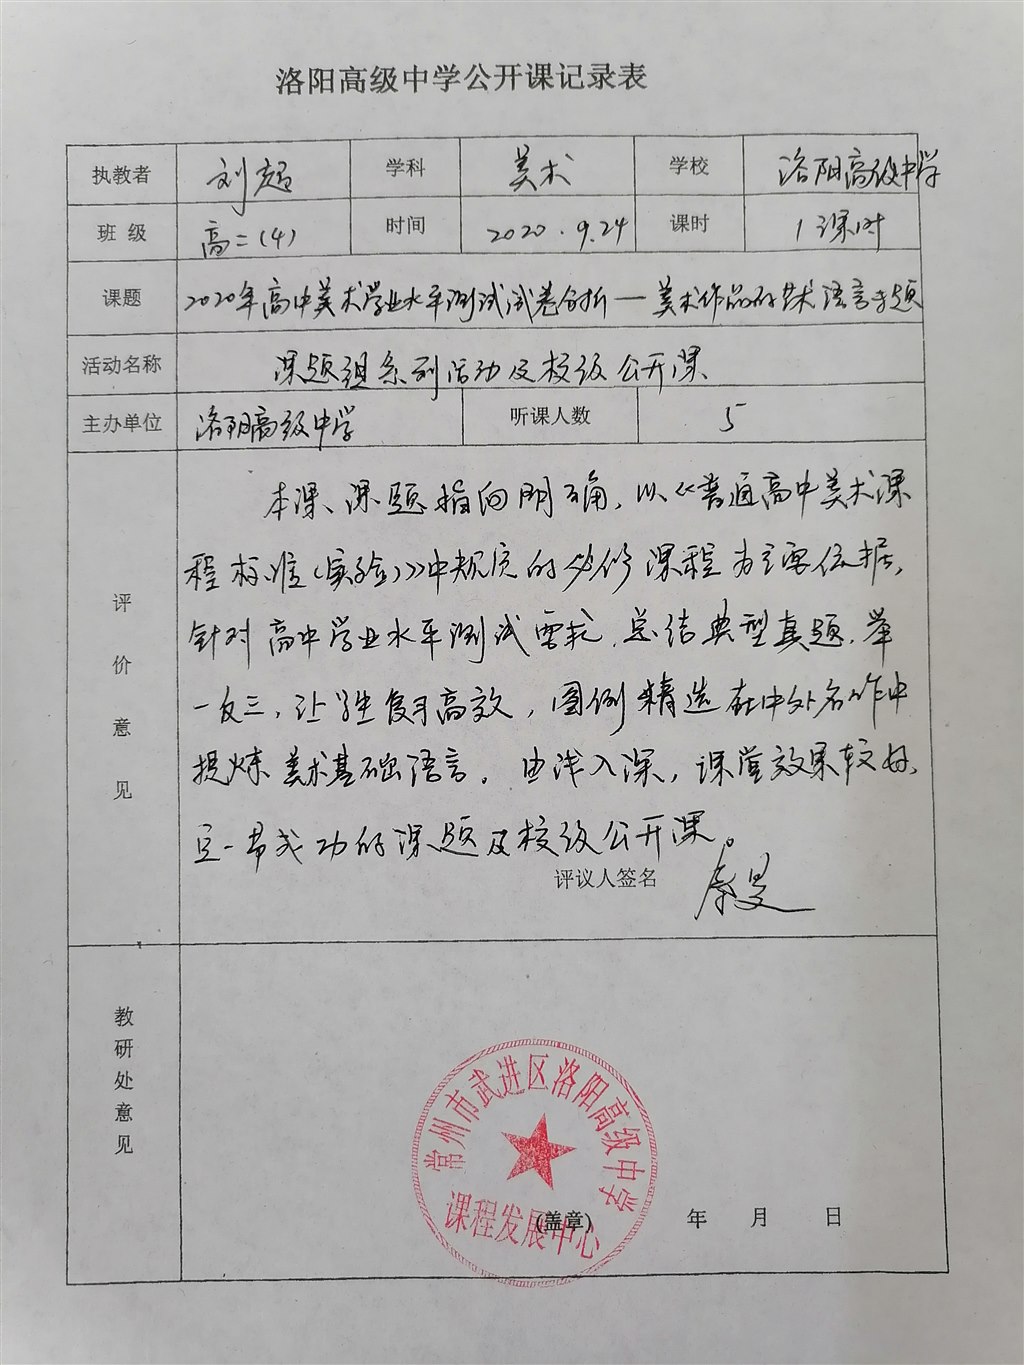 洛阳高级中学公开课记录表
执教者 刘超 学科 美术 学校 洛阳高级中学
班级 高二(4) 时间 2020.9.24 课时 1课时
课题 2020年高中美术学业水平测试试卷分析—美术作品的艺术语言专题
活动名称 课题组系列活动及校级公开课
主办单位 洛阳高级中学 听课人数 5
评价意见
本课、课题指向明确，以《普通高中美术课
程标准(实验)》中规定的必修课程为主要依据，
针对高中学业水平测试要求，总结典型真题，举
一反三，让学生复习高效，图例精选在中外名作中
提炼美术基础语言。由浅入深，课堂效果较好，
是一节成功的课题及校级公开课。
评议人签名
教研处意见
常州市武进区洛阳高级中学
课程发展中心
(盖章) 年 月 日